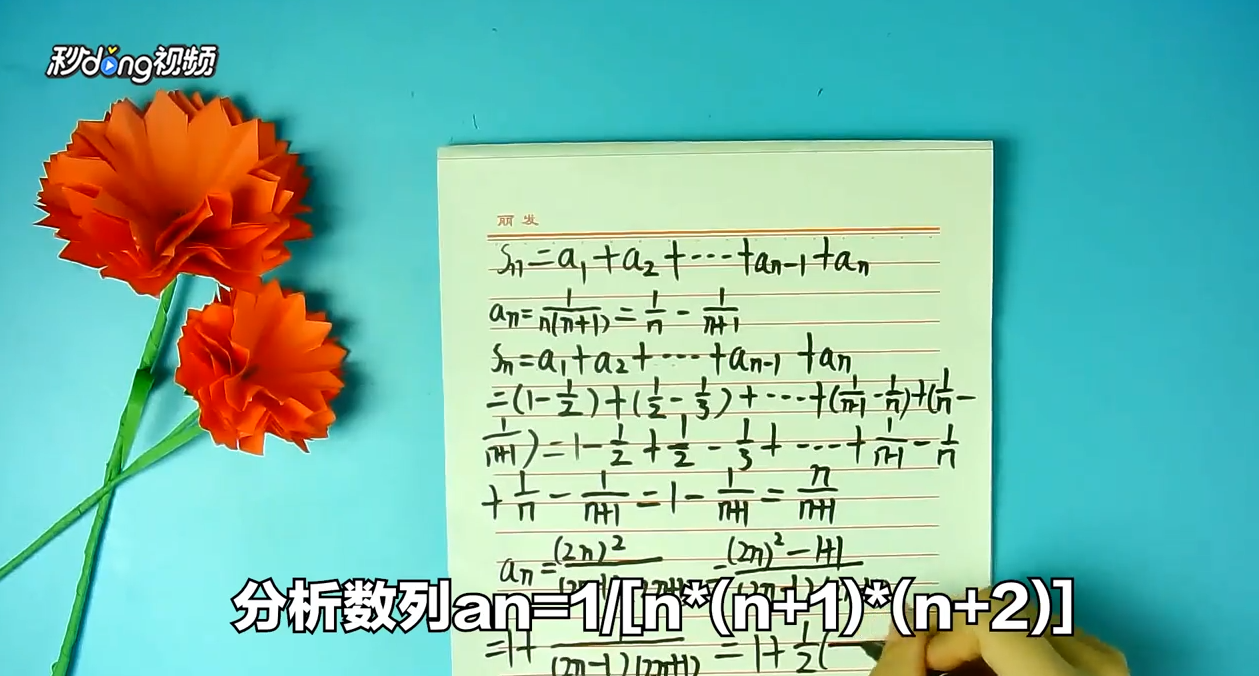 秒dǒng视频
丽发
Sn=a₁+a₂+⋯+aₙ₋₁+aₙ
aₙ=1/(n(n+1))=1/n-1/(n+1)
Sn=a₁+a₂+⋯+aₙ₋₁+aₙ
=(1-1/2)+(1/2-1/3)+⋯+(1/(n-1)-1/n)+(1/n-
1/(n+1))=1-1/2+1/2-1/3+⋯+1/(n-1)-1/n
+1/n-1/(n+1)=1-1/(n+1)=n/(n+1)
aₙ=(2n)²/ =(2n)²-1+1/
分析数列an=1/[n*(n+1)*(n+2)]
=1+ /(2n-1)(2n+1) =1+1/2(